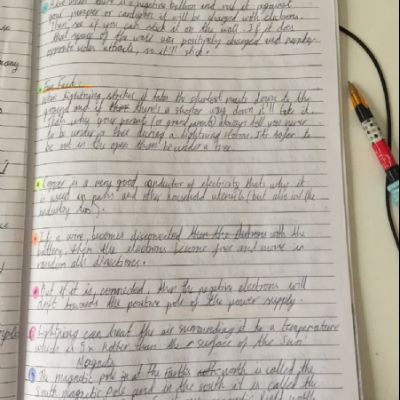 your jumper or cardigan it will be charged with electrons.
Then see if you can stick it on the wall. If it does
that means of the wall was positively charged and
opposite sides attracts, so it'll stick.
Fun Fact:
When lightning strikes it takes the shortest route down to the
ground and if there's a shorter way down it'll take it.
That's why your parents (or grand parents) always tell you never
to be under a tree during a lightning storm. Its safer to
be out in the open than be under a tree.
Copper is a very good conductor of electricity thats why it
is used in and other household utensils (but also in the
industry too).
If a wire becomes disconnected than the with the
battery, then the electrons become free and move in
random all directions.
But if it is connected, then the negative electrons will
drift towards the positive pole of the power supply.
Lightning can heat the air surrounding it to a temperature
which is 5x hotter than the surface of the Sun!
Magnets
The magnetic pole in at the Earth's north is called the
South magnetic Pole and in the south it is called the